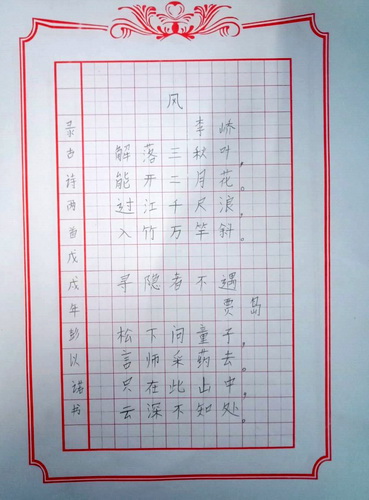 风
李峤
解落三秋叶，
能开二月花。
过江千尺浪，
入竹万竿斜。
寻隐者不遇
贾岛
松下问童子，
言师采药去。
只在此山中，
云深不知处。
录古诗两首戊戌年彭以诺书